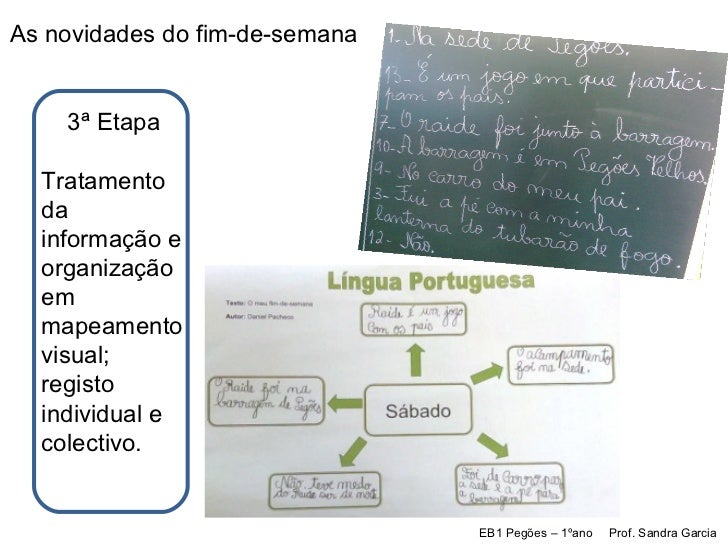 As novidades do fim-de-semana
3ª Etapa
Tratamento
da
informação e
organização
em
mapeamento
visual;
registo
individual e
colectivo.
1- Na sede de Pegões.
13- É um jogo em que partici-
pam os pais.
7- O raide foi junto à barragem.
10- A barragem é em Pegões Velhos
9- No carro do meu pai.
3- Fui a pé com a minha
lanterna do tubarão de fogo.
12- Não.
Língua Portuguesa
Texto: O meu fim-de-semana
Autor: Daniel Pacheco
Raide é um jogo
com os pais
O acampamento
foi na sede.
O Raide foi na
barragem de Pegões
Sábado
Não teve medo
do Raide ser de noite
Foi de carro para
a sede e a pé para
a barragem
EB1 Pegões – 1ºano Prof. Sandra Garcia